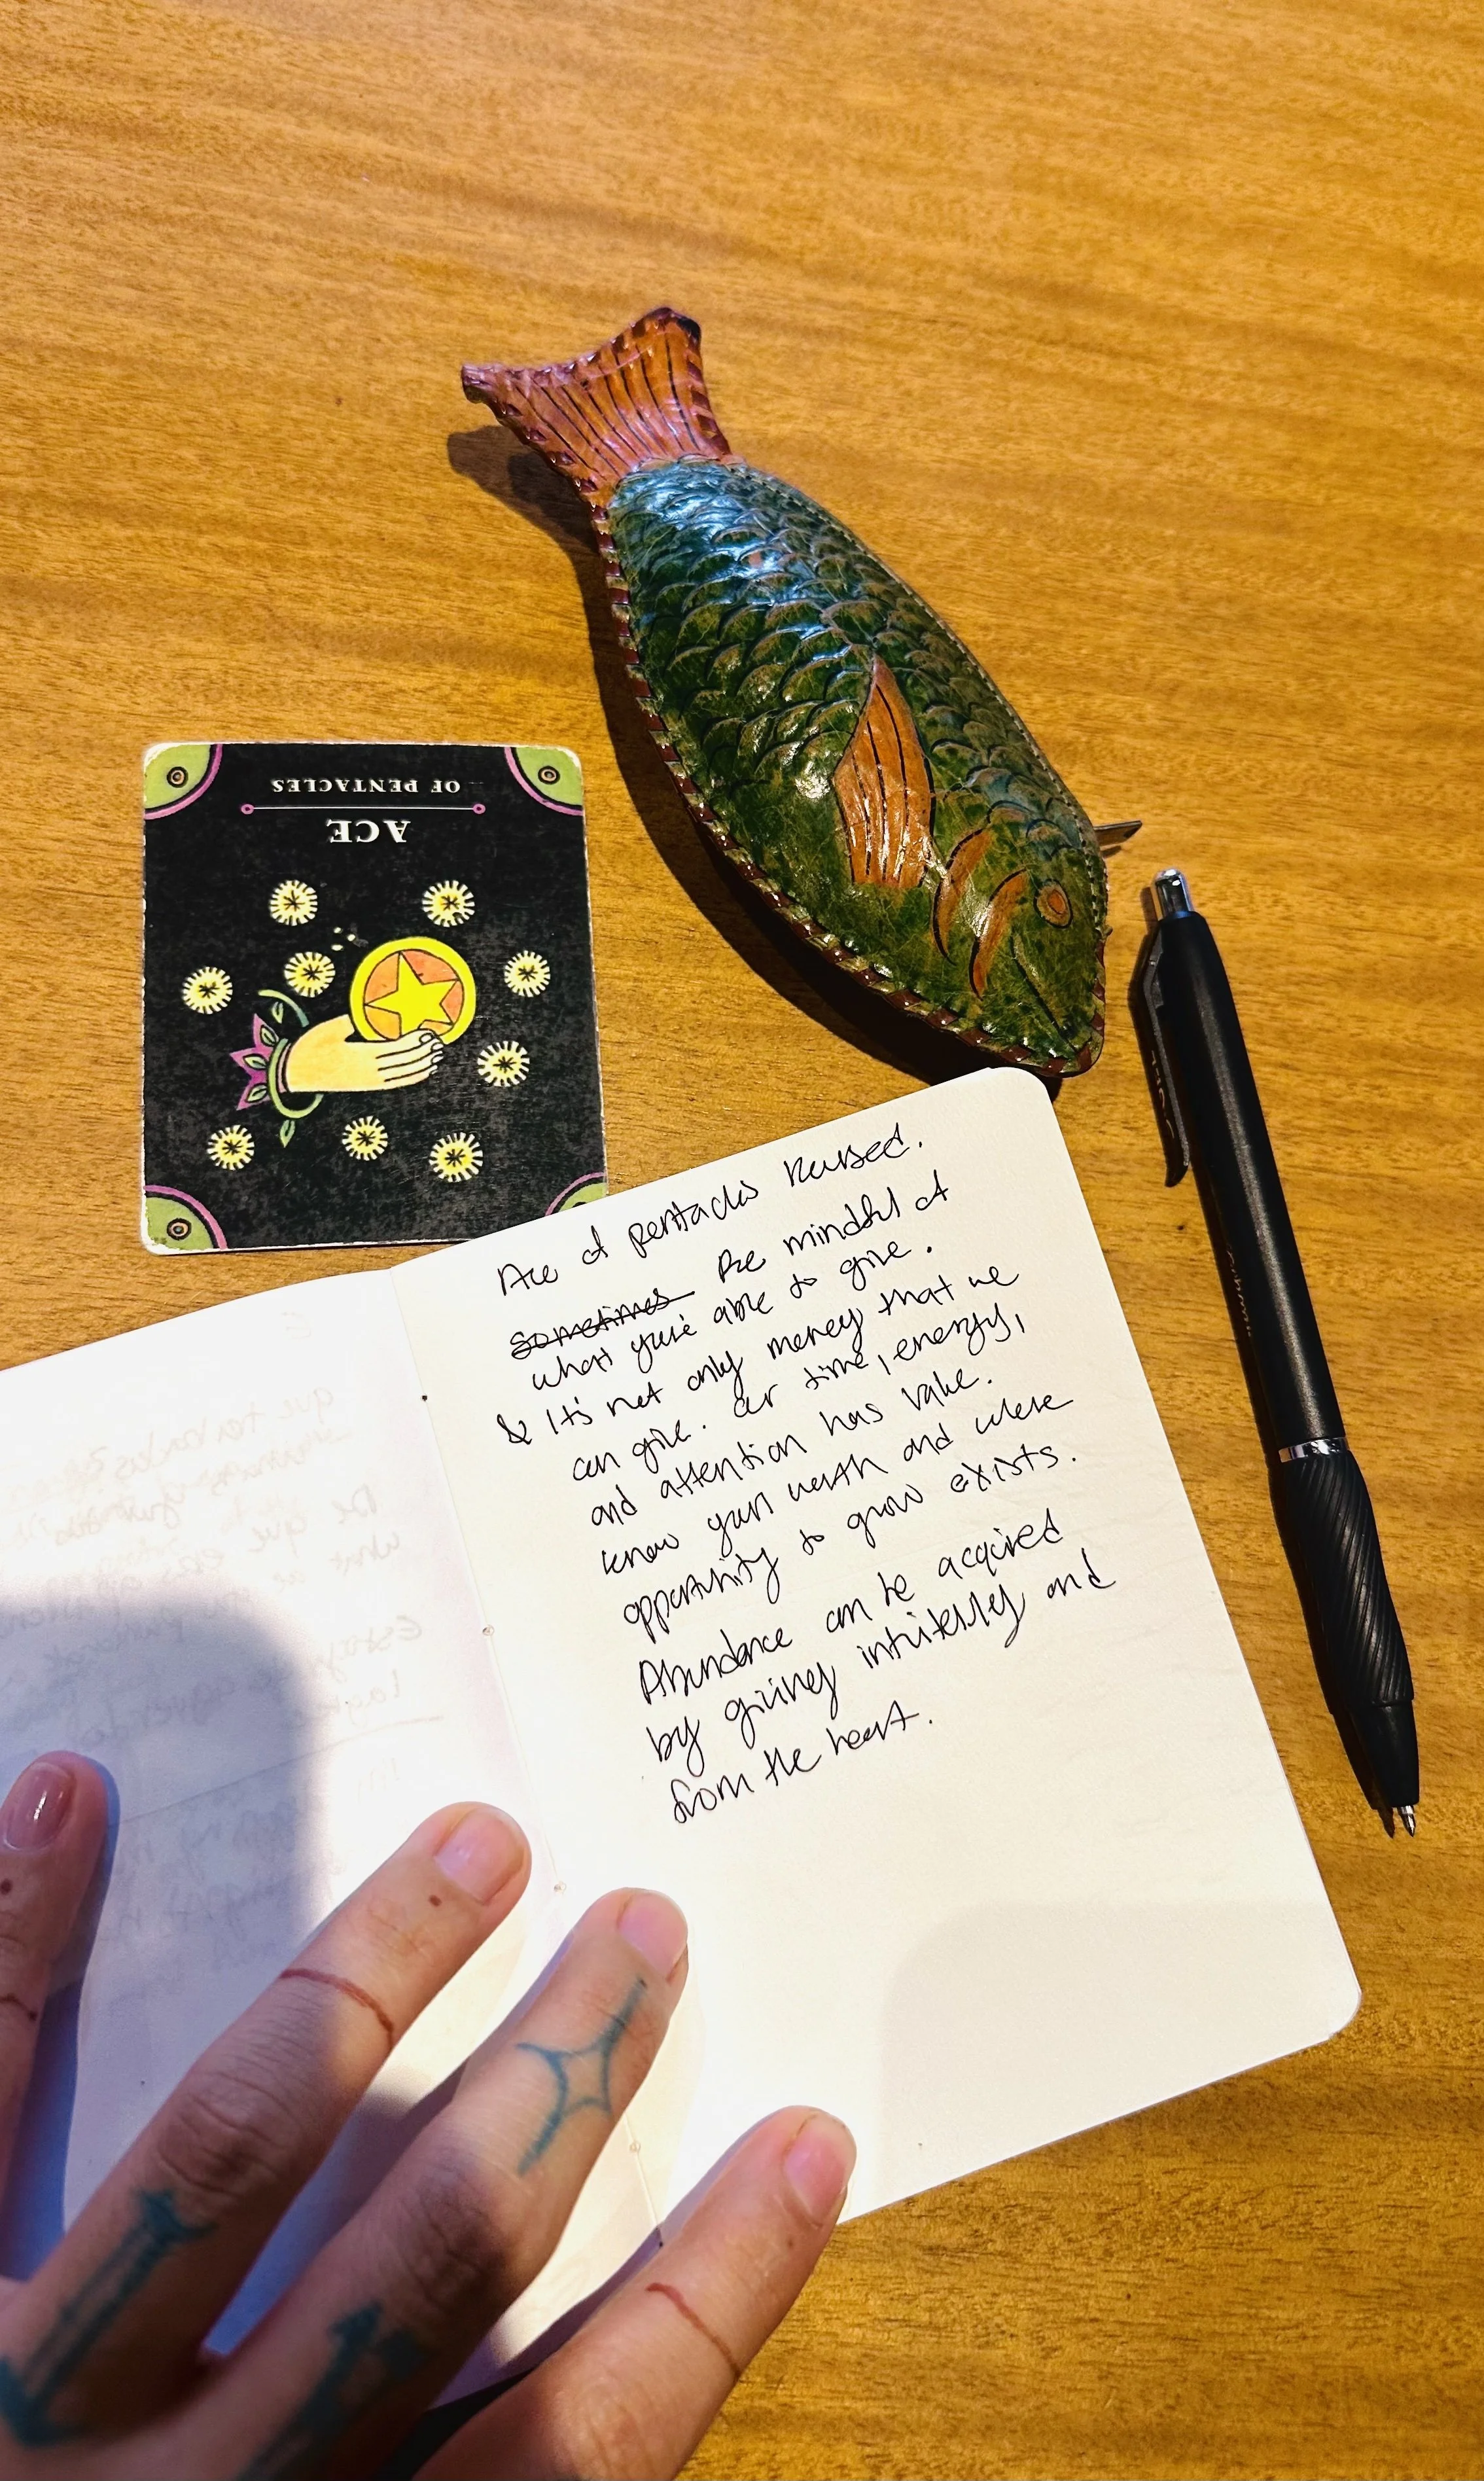 ACE
OF PENTACLES
Ace of pentacles Reversed.
Sometimes Be mindful of
what you're able to give.
& It's not only money that we
can give. Our time, energy,
and attention has value.
know your worth and where
opportunity to grow exists.
Abundance can be acquired
by giving intuitively and
from the heart.